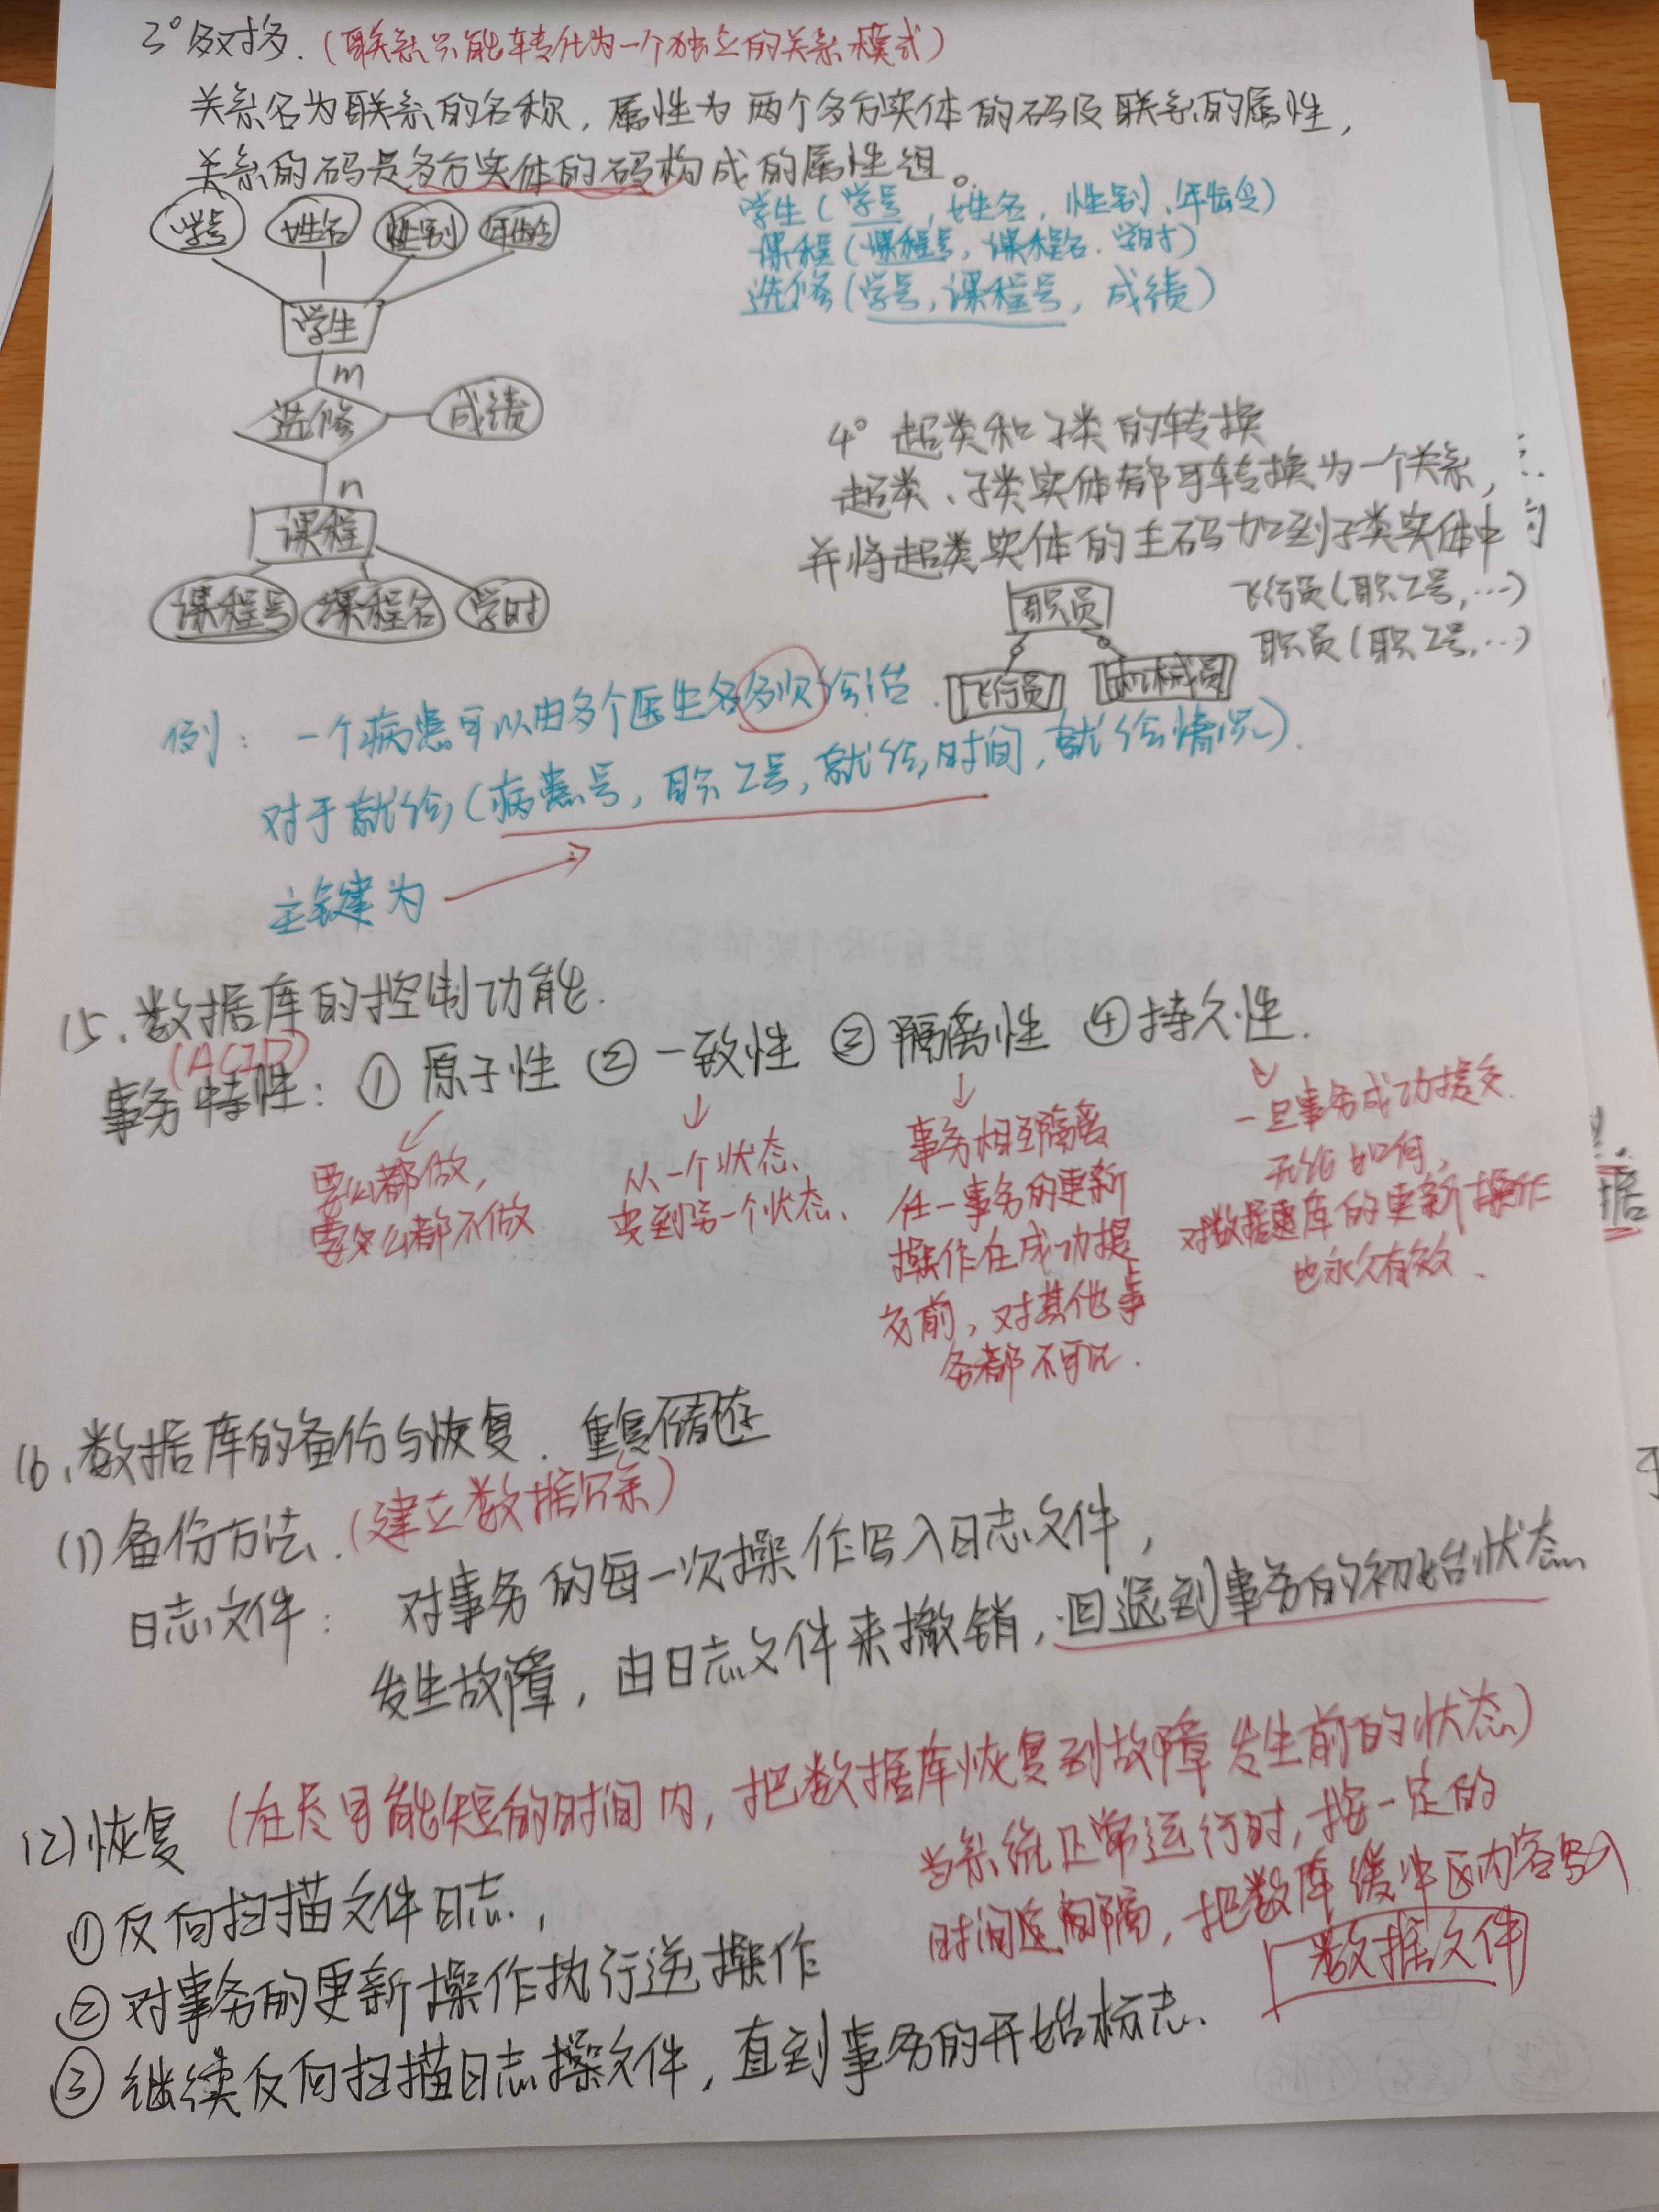 3° 多对多.（联系只能转化为一个独立的关系模式）
关系名为联系的名称，属性为两个多方实体的码及联系的属性，
关系的码是多方实体的码构成的属性组。
学号 姓名 性别 年龄
学生（学号，姓名，性别，年龄）
课程（课程号，课程名，学时）
选修（学号，课程号，成绩）
学生
m
选修 成绩
n
课程
课程号 课程名 学时
4° 超类和子类的转换
超类、子类实体都可转换为一个关系，
并将超类实体的主码加到子类实体中
职员
飞行员 机械员
飞行员（职工号，…）
职员（职工号，…）
例：一个病患可以由多个医生各多次诊治.
对于就诊（病患号，职工号，就诊时间，就诊情况）.
主键为
15、数据库的控制功能.
(ACID)
事务特性：① 原子性 ② 一致性 ③ 隔离性 ④ 持久性.
要么都做，
要么都不做
从一个状态
变到另一个状态、
事务相互隔离
任一事务的更新
操作在成功提
交前，对其他事
务都不可见.
一旦事务成功提交.
无论如何，
对数据库的更新操作
也永久有效.
16、数据库的备份与恢复. 重复存储
(1) 备份方法.（建立数据冗余）
日志文件：对事务的每一次操作写入日志文件，
发生故障，由日志文件来撤销，回退到事务的初始状态
(2) 恢复（在尽可能短的时间内，把数据库恢复到故障发生前的状态）
① 反向扫描文件日志，
② 对事务的更新操作执行逆操作
③ 继续反向扫描日志文件，直到事务的开始标志.
当系统正常运行时，按一定的
时间间隔，把数库缓冲区内容写入
数据文件
据